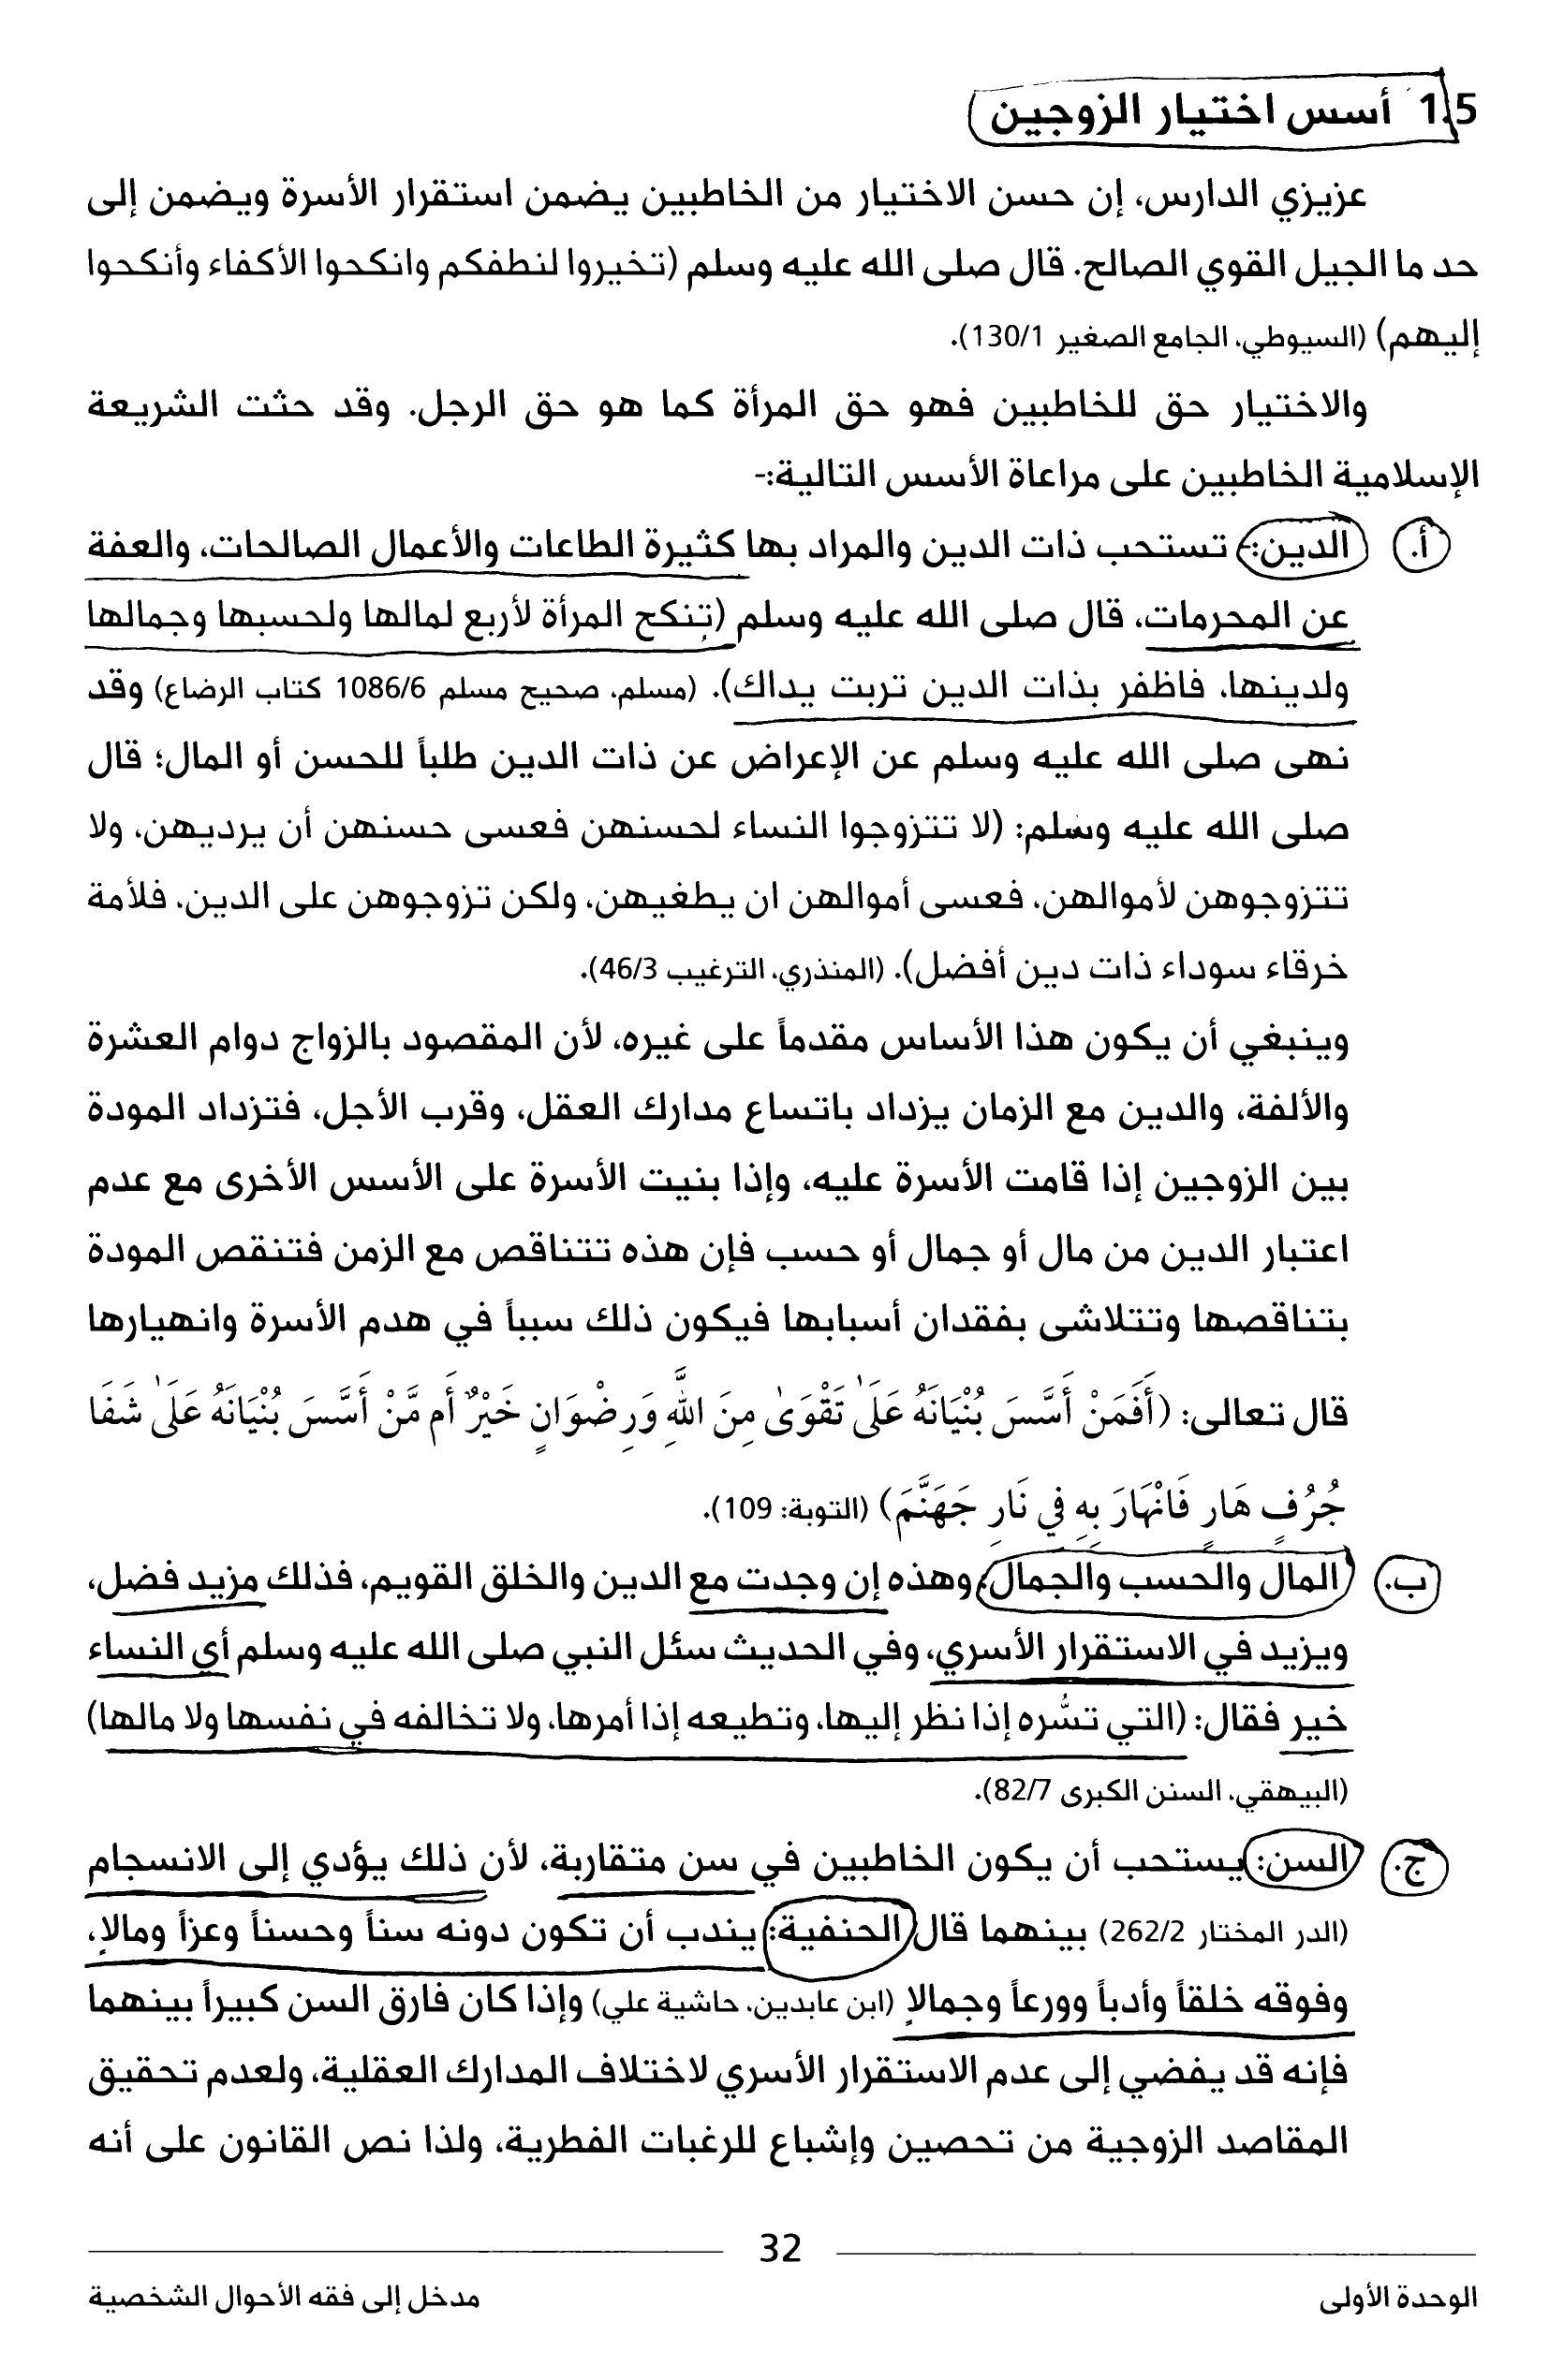 1.5 أسس اختيار الزوجين
عزيزي الدارس، إن حسن الاختيار من الخاطبين يضمن استقرار الأسرة ويضمن إلى
حد ما الجيل القوي الصالح. قال صلى الله عليه وسلم (تخيروا لنطفكم وانكحوا الأكفاء وأنكحوا
إليهم) (السيوطي، الجامع الصغير 130/1).
والاختيار حق للخاطبين فهو حق المرأة كما هو حق الرجل. وقد حثت الشريعة
الإسلامية الخاطبين على مراعاة الأسس التالية:-
أ. الدين:- تستحب ذات الدين والمراد بها كثيرة الطاعات والأعمال الصالحات، والعفة
عن المحرمات، قال صلى الله عليه وسلم (تنكح المرأة لأربع لمالها ولحسبها وجمالها
ولدينها، فاظفر بذات الدين تربت يداك). (مسلم، صحيح مسلم 1086/6 كتاب الرضاع) وقد
نهى صلى الله عليه وسلم عن الإعراض عن ذات الدين طلباً للحسن أو المال؛ قال
صلى الله عليه وسلم: (لا تتزوجوا النساء لحسنهن فعسى حسنهن أن يرديهن، ولا
تتزوجوهن لأموالهن، فعسى أموالهن ان يطغيهن، ولكن تزوجوهن على الدين، فلأمة
خرقاء سوداء ذات دين أفضل). (المنذري، الترغيب 46/3).
وينبغي أن يكون هذا الأساس مقدماً على غيره، لأن المقصود بالزواج دوام العشرة
والألفة، والدين مع الزمان يزداد باتساع مدارك العقل، وقرب الأجل، فتزداد المودة
بين الزوجين إذا قامت الأسرة عليه، وإذا بنيت الأسرة على الأسس الأخرى مع عدم
اعتبار الدين من مال أو جمال أو حسب فإن هذه تتناقص مع الزمن فتنقص المودة
بتناقصها وتتلاشى بفقدان أسبابها فيكون ذلك سبباً في هدم الأسرة وانهيارها
قال تعالى: (أَفَمَنْ أَسَّسَ بُنْيَانَهُ عَلَىٰ تَقْوَىٰ مِنَ اللَّهِ وَرِضْوَانٍ خَيْرٌ أَم مَّنْ أَسَّسَ بُنْيَانَهُ عَلَىٰ شَفَا
جُرُفٍ هَارٍ فَانْهَارَ بِهِ فِي نَارِ جَهَنَّمَ) (التوبة: 109).
ب. المال والحسب والجمال: وهذه إن وجدت مع الدين والخلق القويم، فذلك مزيد فضل،
ويزيد في الاستقرار الأسري، وفي الحديث سئل النبي صلى الله عليه وسلم أي النساء
خير فقال: (التي تسُره إذا نظر إليها، وتطيعه إذا أمرها، ولا تخالفه في نفسها ولا مالها)
(البيهقي، السنن الكبرى 82/7).
ج. السن: يستحب أن يكون الخاطبين في سن متقاربة، لأن ذلك يؤدي إلى الانسجام
(الدر المختار 262/2) بينهما قال الحنفية: يندب أن تكون دونه سناً وحسناً وعزاً ومالاٍ،
وفوقه خلقاً وأدباً وورعاً وجمالاٍ (ابن عابدين، حاشية علي) وإذا كان فارق السن كبيراً بينهما
فإنه قد يفضي إلى عدم الاستقرار الأسري لاختلاف المدارك العقلية، ولعدم تحقيق
المقاصد الزوجية من تحصين وإشباع للرغبات الفطرية، ولذا نص القانون على أنه
32
الوحدة الأولى
مدخل إلى فقه الأحوال الشخصية